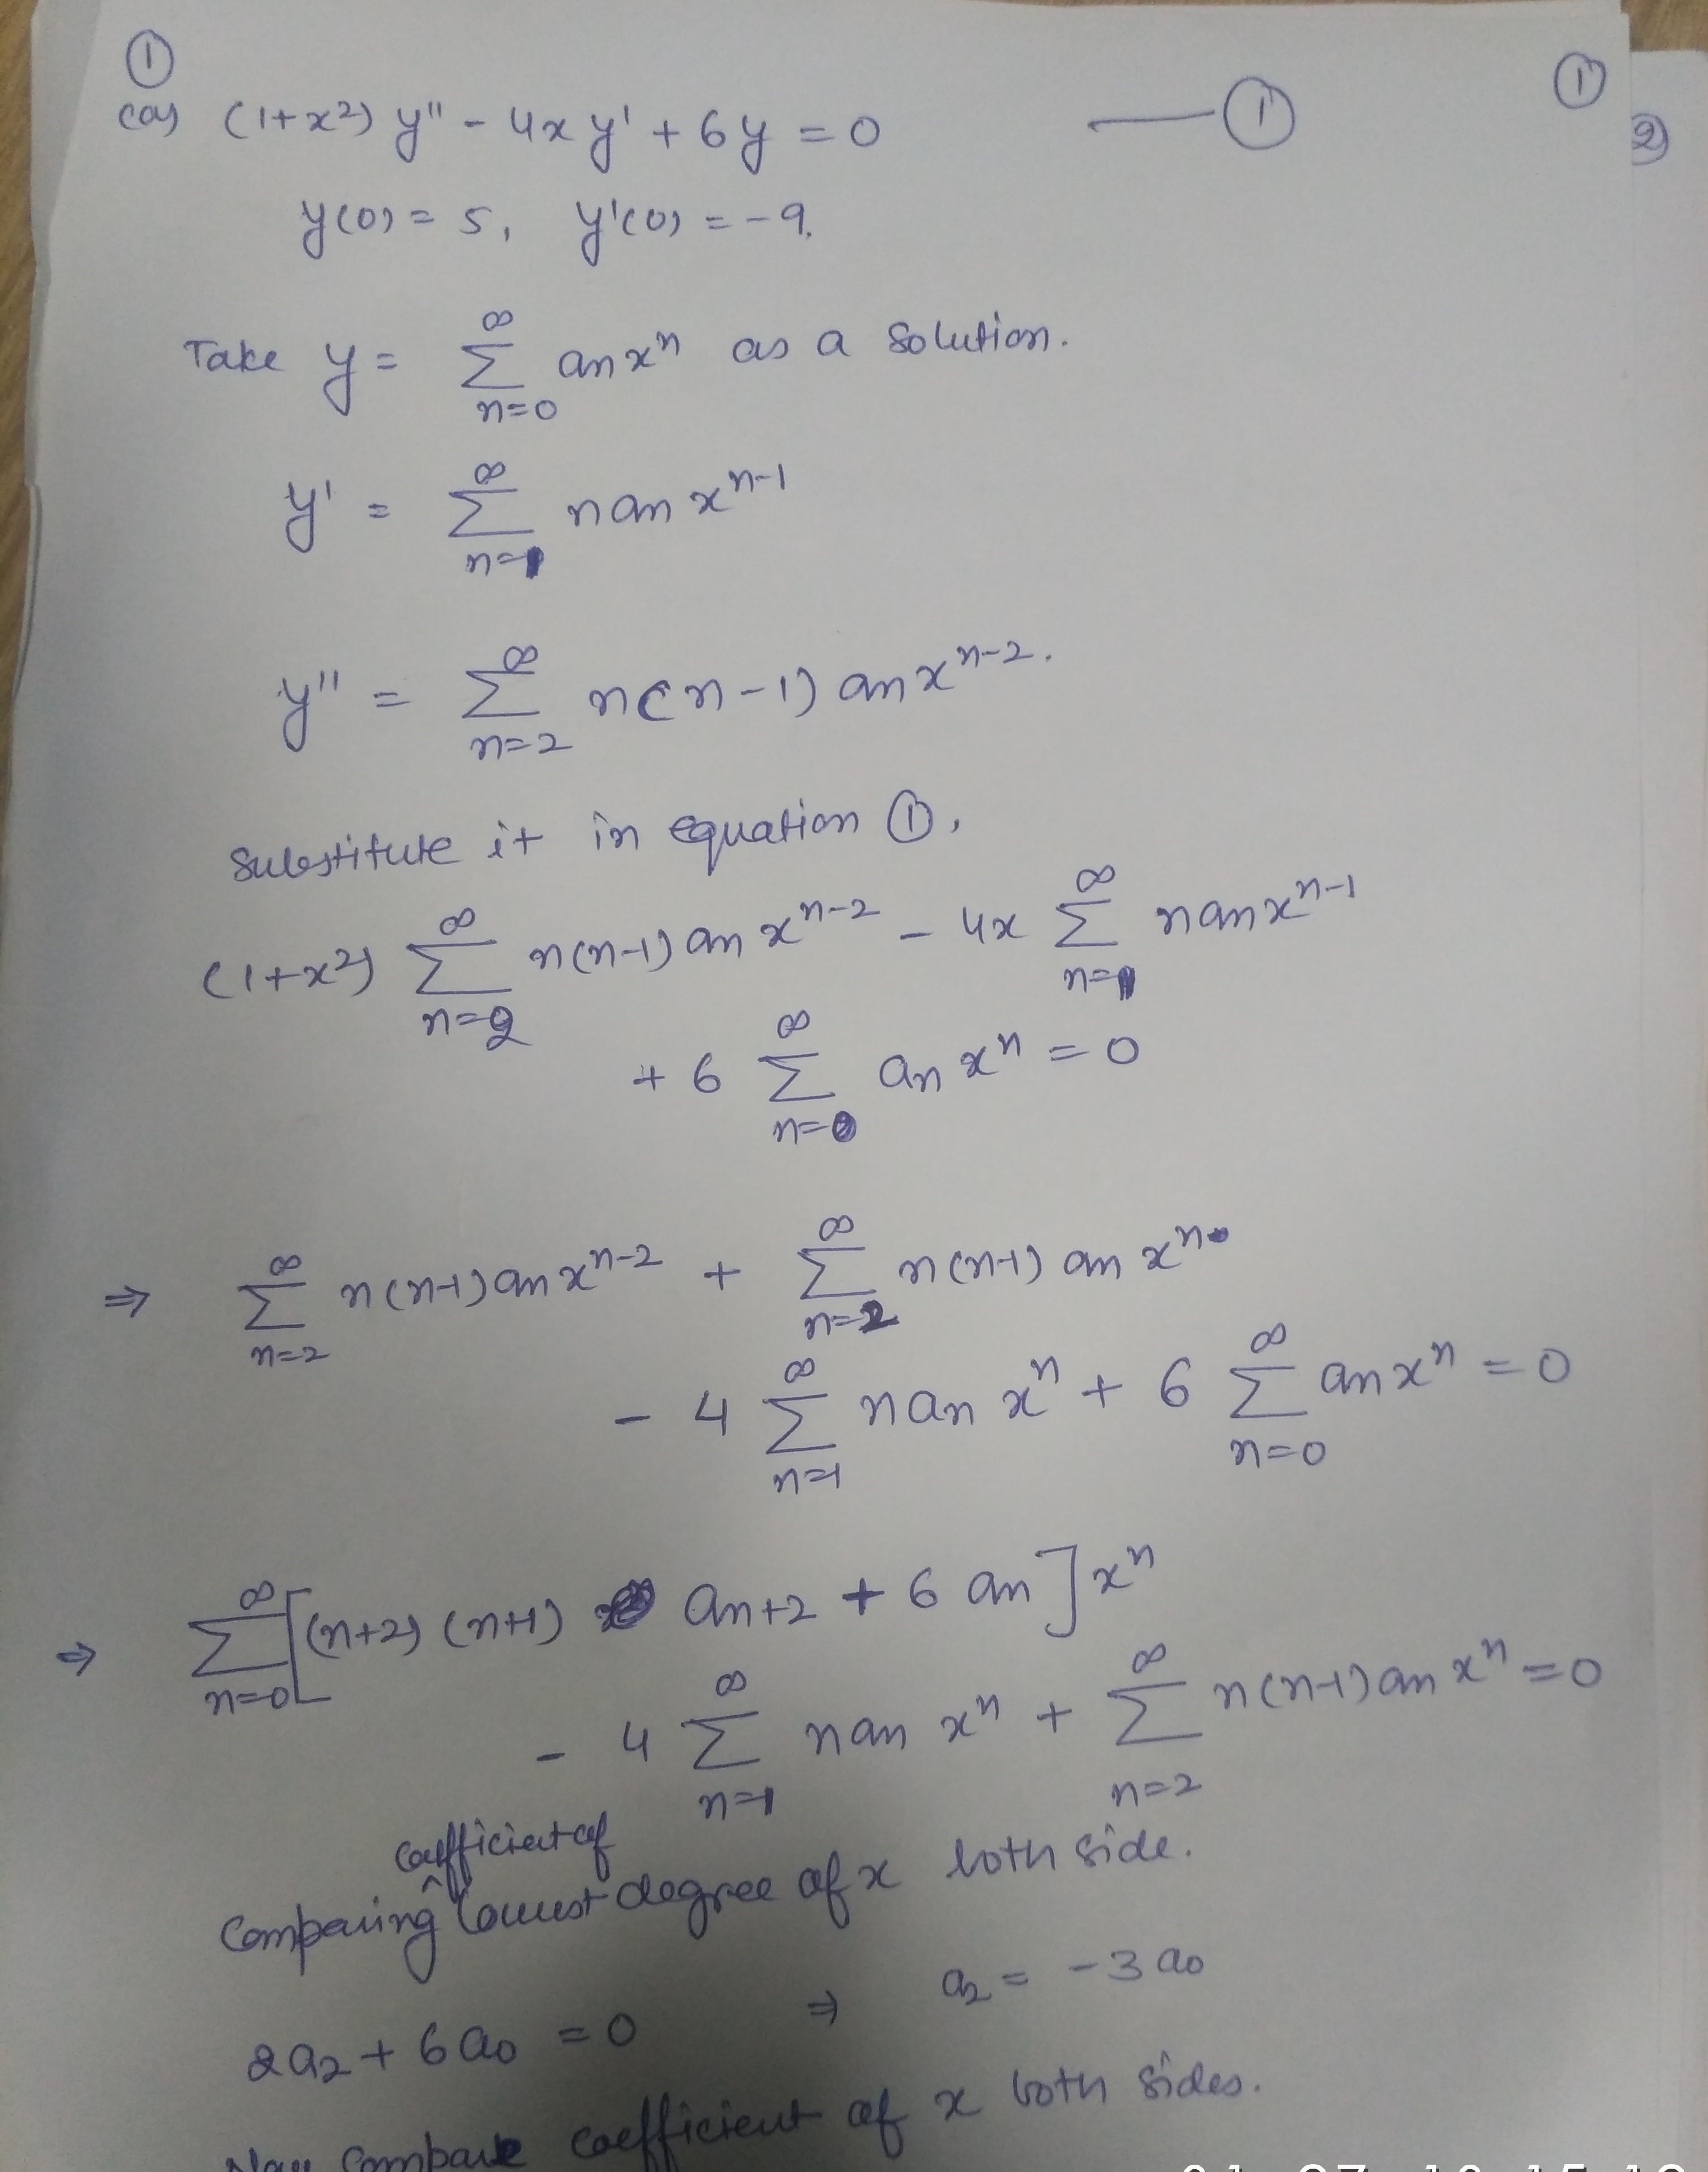 ①
①
(a) (1+x²) y'' - 4x y' + 6y = 0 —— ①
2)
y(0) = 5, y'(0) = -9.
Take y = ∞∑n=0 anxⁿ as a solution.
y' = ∞∑n=1 n an xⁿ⁻¹
y'' = ∞∑n=2 n(n-1) an xⁿ⁻².
Substitute it in equation ①,
(1+x²) ∞∑n=2 n(n-1) an xⁿ⁻² - 4x ∞∑n=1 n an xⁿ⁻¹
+ 6 ∞∑n=0 an xⁿ = 0
⇒ ∞∑n=2 n(n-1) an xⁿ⁻² + ∞∑n=2 n(n-1) an xⁿ
- 4 ∞∑n=1 n an xⁿ + 6 ∞∑n=0 an xⁿ = 0
⇒ ∞∑n=0 [(n+2) (n+1) an+2 + 6 an] xⁿ
- 4 ∞∑n=1 n an xⁿ + ∞∑n=2 n(n-1) an xⁿ = 0
coefficient of
Comparing ^ lowest degree of x both side.
2a₂ + 6a₀ = 0 ⇒ a₂ = -3a₀
Now compare coefficient of x both sides.